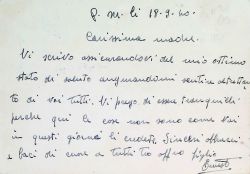 P. M. li 18-9-40.
Carissima madre.
Vi scrivo assicurandovi del mio ottimo
stato di salute augurandomi sentire altrettan
to di voi tutti. Vi prego di essere tranquilli
perche qui le cose non sono come voi
in questi giorni li credete. Sinceri affettuosi
e baci di cuore a tutti tro affmo figlio